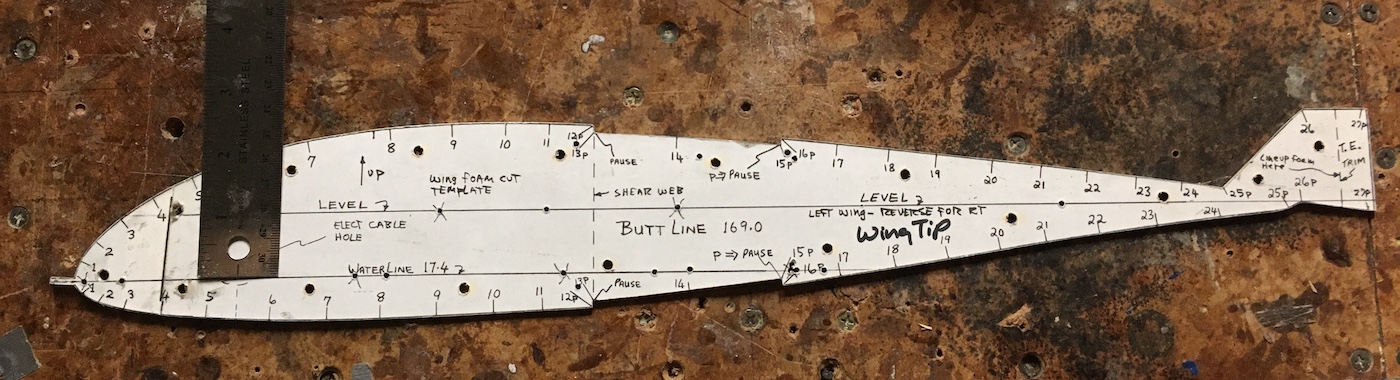 4
3
STAINLESS STEEL
2
1
7 8 9 10 11 12P 13P
PAUSE
14
P⇒PAUSE
15P 16P 17 18 19 20 21 22 23 24 25P 25P 26P 26 27P 27P
T.E.
TRIM
Lineup foam
Here
UP
WING FOAM CUT
TEMPLATE
SHEAR WEB
LEVEL
LEVEL
LEFT WING - REVERSE FOR RT
Wing Tip
ELECT CABLE
HOLE
BUTT LINE 169.0
WATERLINE 17.4
P⇒PAUSE
PAUSE
1 2 3 4
1 2 3 4 5 6 7 8 9 10 11 12P 13P 14 15P 16P 17 18 19 20 21 22 23 24